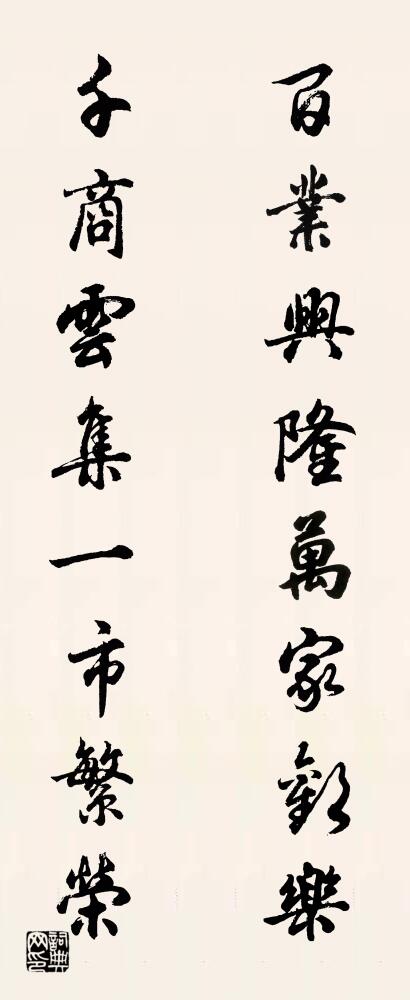 百業興隆萬家歡樂
千商雲集一市繁榮
詞典網印